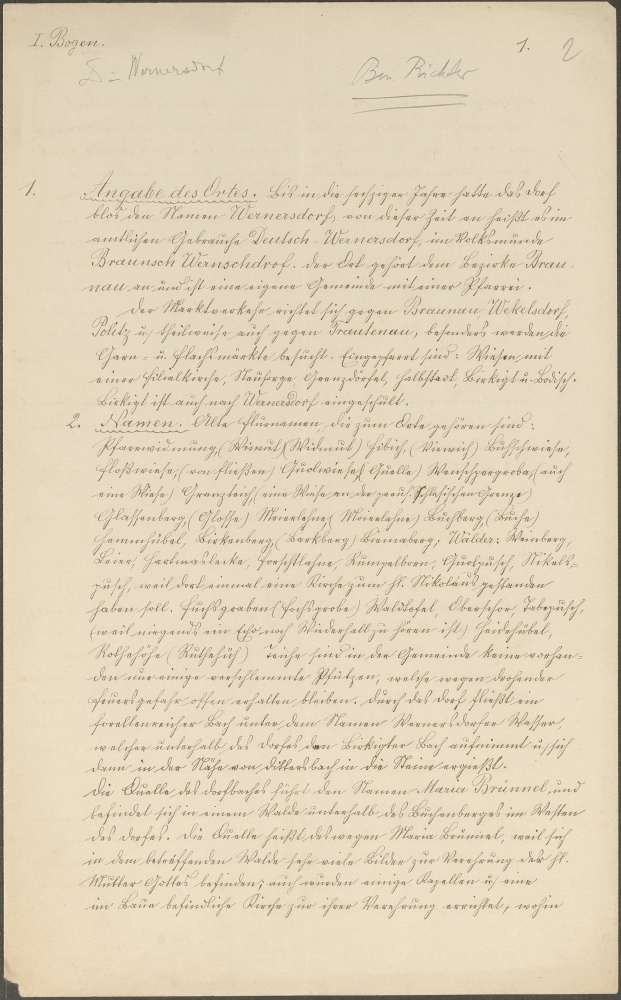 I. Bogen.
1. 2
D = Wernersdorf
Ben. Richter
1. Angabe des Ortes. Bis in die sechziger Jahre hatte das Dorf
blos den Namen Wernersdorf, von dieser Zeit an heißt es im
amtlichen Gebrauche Deutsch-Wernersdorf, im Volksmunde
Braunsch Wernschdrof. Der Ort gehört dem Bezirke Brau-
nau an und ist eine eigene Gemeinde mit einer Pfarrei.
Der Marktverkehr richtet sich gegen Braunau, Wekelsdorf,
Politz u. theilweise auch gegen Trautenau, besonders werden die
Garn- u. Flachsmärkte besucht. Eingepfarrt sind: Wiesen, mit
einer Filialkirche, Neusorge, Grenzdörfel, Halbstadt, Birkigt u. Bodisch.
Birkigt ist auch nach Wernersdorf eingeschult.
2. Namen. Alte Flurnamen, die zum Orte gehören sind:
Pfarrwidmung, (Wimut) (Widmut) Hübich, (Viewich) Buschwiese,
Floßwiese, (von fließen) (Quelle) (auch
eine Wiese) Grenzteich (eine Wiese an der preuß. schlesischen Grenze)
Glassenberg, (Glosse) Meierlehne (Moierlahne) Buchberg, (Buche)
Hammhübel, Birkenberg, (Barkberg) Wälder: Weinberg,
Rumpelborn, Nikels-
pusch, weil dort einmal eine Kirche zum hl. Nikolaus gestanden
haben soll. Fuchsgraben (Fochsgrobe) Oberschor,
(weil nirgends ein Echo noch Wiederhall zu hören ist) Heidehübel,
Teiche sind in der Gemeinde keine vorhan-
den nur einige verschlemmte Pfützen, welche wegen drohender
Feuersgefahr offen erhalten bleiben. Durch das Dorf fließt ein
forellenreicher Bach unter dem Namen Wernersdorfer Wasser,
welcher unterhalb des Dorfes den Birkigter Bach aufnimmt u. sich
dann in der Nähe von Dittersbach in die Steine ergießt.
Die Quelle des Dorfbaches führt den Namen Maria Brünnel, und
befindet sich in einem Walde unterhalb des Buchenberges im Westen
des Dorfes. Die Quelle heißt deswegen Maria Brünnel, weil sich
in dem betreffenden Walde sehr viele Bilder zur Verehrung der hl.
Mutter Gottes befinden; auch wurden einige Kapellen u. eine
im Baue befindliche Kirche zur ihrer Verehrung errichtet, wohin